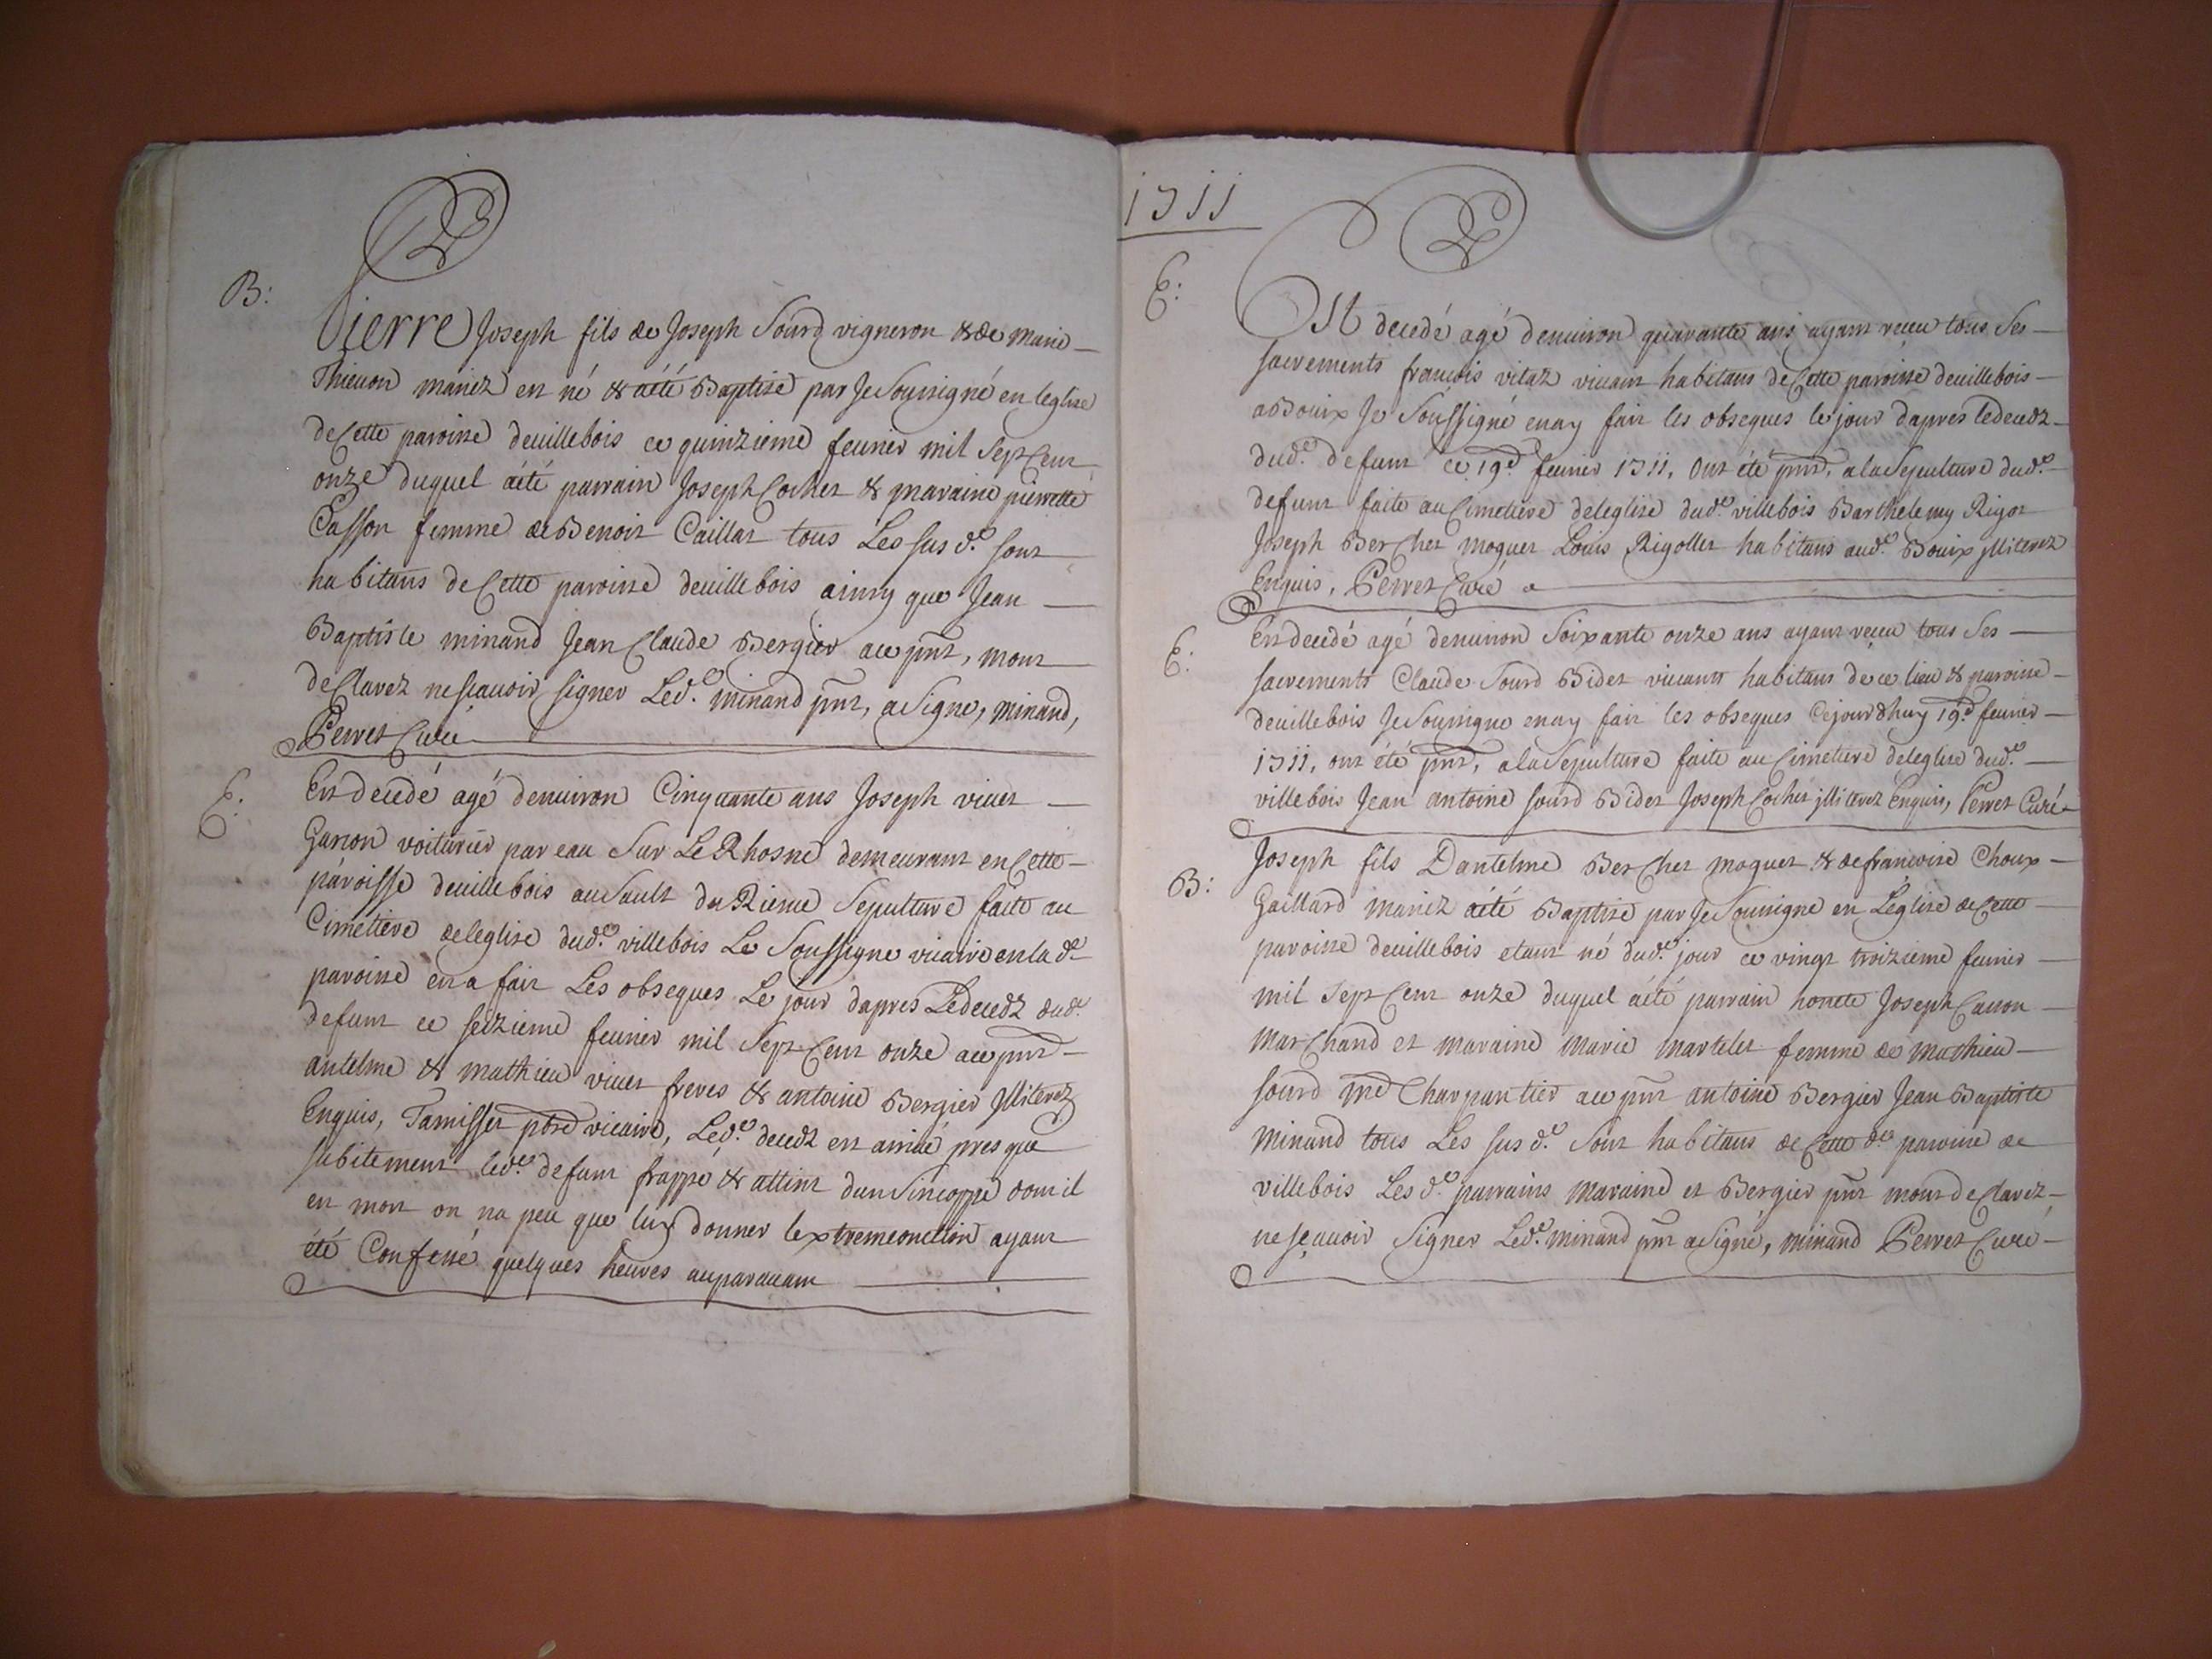 B:
Pierre Joseph fils de Joseph Sourd vigneron & de marie
Thieuon mariez est né & aété Baptisé par Je Soussigné en leglise
de Cette paroisse deuillebois ce quinzieme feurier mil Sept Cent
onze duquel aété parrain Joseph Cochet & maraine pierrette
Casson femme de Benoit Caillat tous Les sus d.s sont
habitans de Cette paroisse deuillebois ainsy que Jean
Baptiste minand Jean Claude Bergier ace pnts, mont
de Clarez nescauoir signer Led.t minand pnt, a Signé, minand,
Perret Curé
E.
Est decedé agé denuiron Cinquante ans Joseph viuet
Garson voiturier par eau Sur Le Rhosne demeurant en Cette
paroisse deuillebois au Sault du Rieme Sepulture faite au
Cimetiere deleglise dud.t villebois Le Soussigne vicaire en lad.te
paroisse en a fait Les obseques Le jour dapres Ledecedz dud.t
defunt ce seizieme feurier mil Sept Cent onze ace pnts
antelme & mathieu viuet freres & antoine Bergier Jlliterez
Enquis, Tamisset pbre vicaire, Led.t decedz est arriué presque
subitement led.t defunt frappé & attint dun Sincoppe dont il
est mort on na peu que luy donner lextremeonction ayant
été Confessé quelques heures auparauant
1711
E:
Est decedé agé denuiron quarante ans ayant receu tous Ses
sacrements francois vitaz viuant habitans de Cette paroisse deuillebois
a Bouix Je Soussigné enay fait les obseques le jour dapres ledecedz
dud.t defunt ce 19.d feurier 1711, Ont été pnts, ala Sepulture dud.t
defunt faite au Cimetiere deleglise dud.t villebois Barthelemy Rigot
Joseph Berchet moquet Louis Rigollet habitans aud.t Bouix Jlliterez
Enquis, Perret Curé
E:
Est decedé agé denuiron Soixante onze ans ayant receu tous Ses
sacrements Claude Sourd Bidet viuant habitans de ce lieu & paroisse
deuillebois Je Soussigne enay fait les obseques Cejourdhuy 19.d feurier
1711, ont été pnts, ala Sepulture faite au Cimetiere deleglise dud.t
villebois Jean antoine Sourd Bidet Joseph Cochet Jlliterez Enquis, Perret Curé
B:
Joseph fils Dantelme Berchet moquet & defrancoise Choux
Gaillard mariez aété Baptisé par Je Soussigne en Leglise de Cette
paroisse deuillebois etant né dud.t jour ce vingt troizieme feurier
mil Sept Cent onze duquel aété parrain honete Joseph Casson
marchand et maraine marie martelet femme de mathieu
Sourd me Charpantier ace pnt antoine Bergier Jean Baptiste
minand tous Les sus d.s Sont habitans de Cette d.te paroisse de
villebois Les d.s parrains maraine et Bergier pnt mont de Clarez
nescauoir Signer Led.t minand pnt a Signé, minand Perret Curé